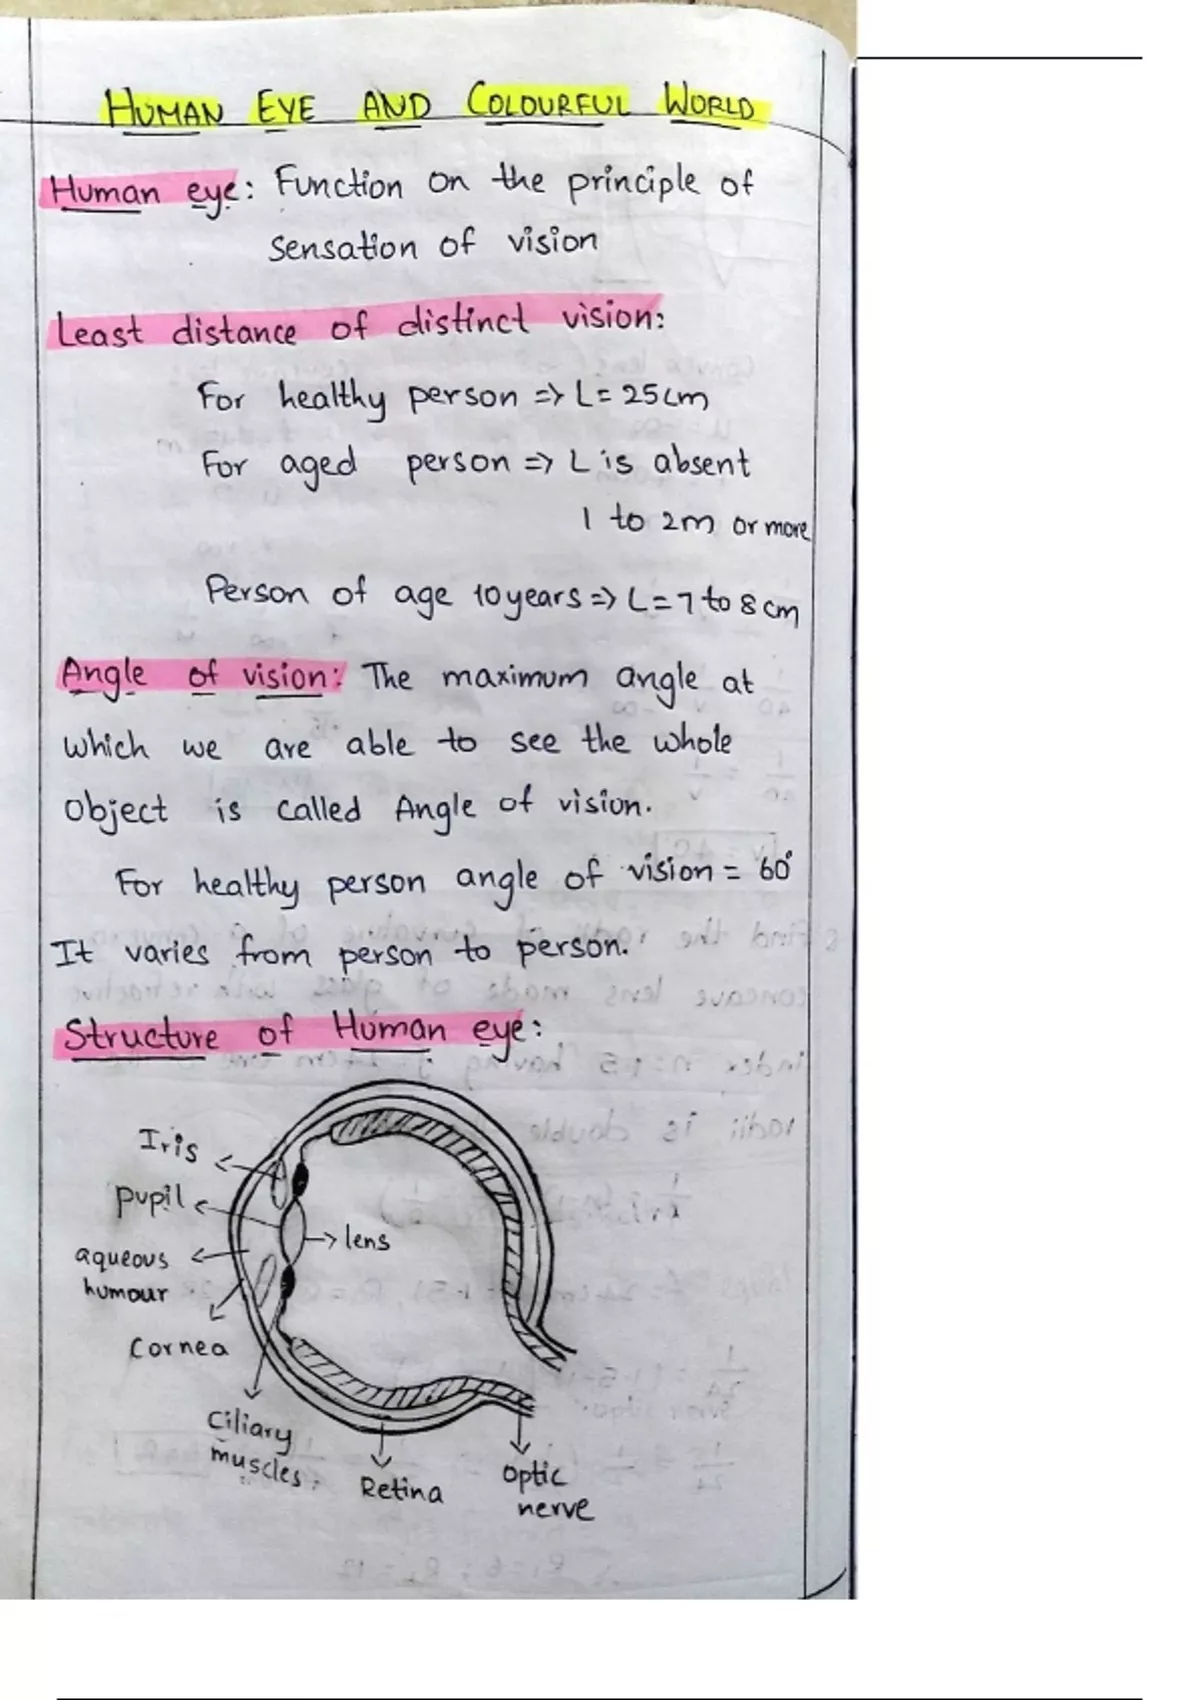 HUMAN EYE AND COLOURFUL WORLD
Human eye: Function on the principle of
sensation of vision
Least distance of distinct vision:
For healthy person => L= 25cm
For aged person => L is absent
1 to 2m or more
Person of age 10years => L=7 to 8cm
Angle of vision: The maximum angle at
which we are able to see the whole
object is called Angle of vision.
For healthy person angle of vision = 60°
It varies from person to person.
Structure of Human eye:
Iris
pupil
lens
aqueous
humour
Cornea
Ciliary
muscles
Retina
optic
nerve